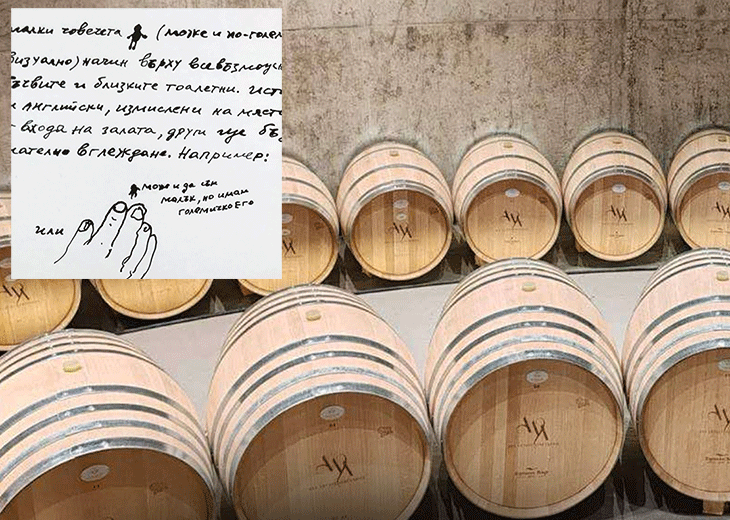 малки човечета (може и по-голем
визуално) начин върху всевъзможн
ъчвите и близките тоалетни. Ист
и английски, измислени на мяст
входа на залата, други ще бъ
мателно вглеждане. Например:
може и да съм
малък, но имам
големичко Его
или